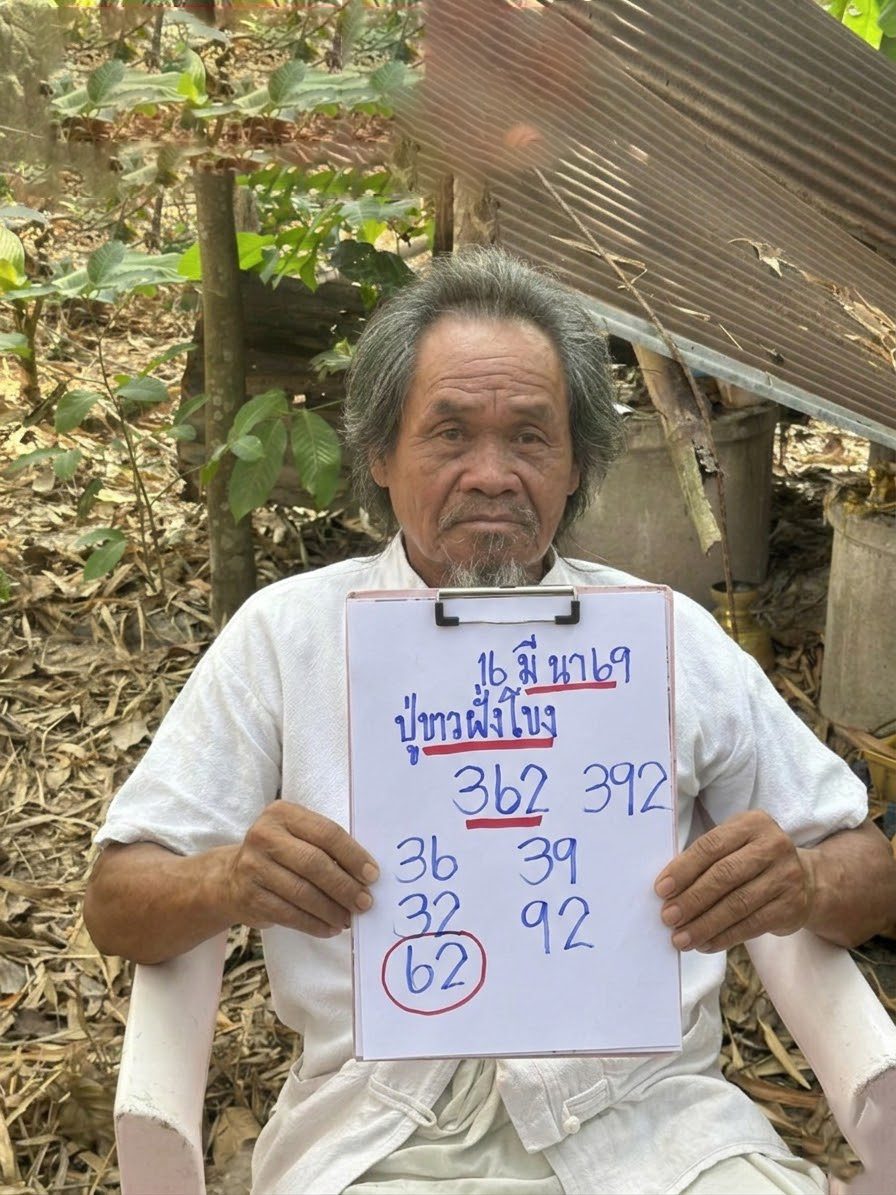 16 มีนา 69
ปู่ขาวฝั่งโขง
362 392
36 39
32 92
62